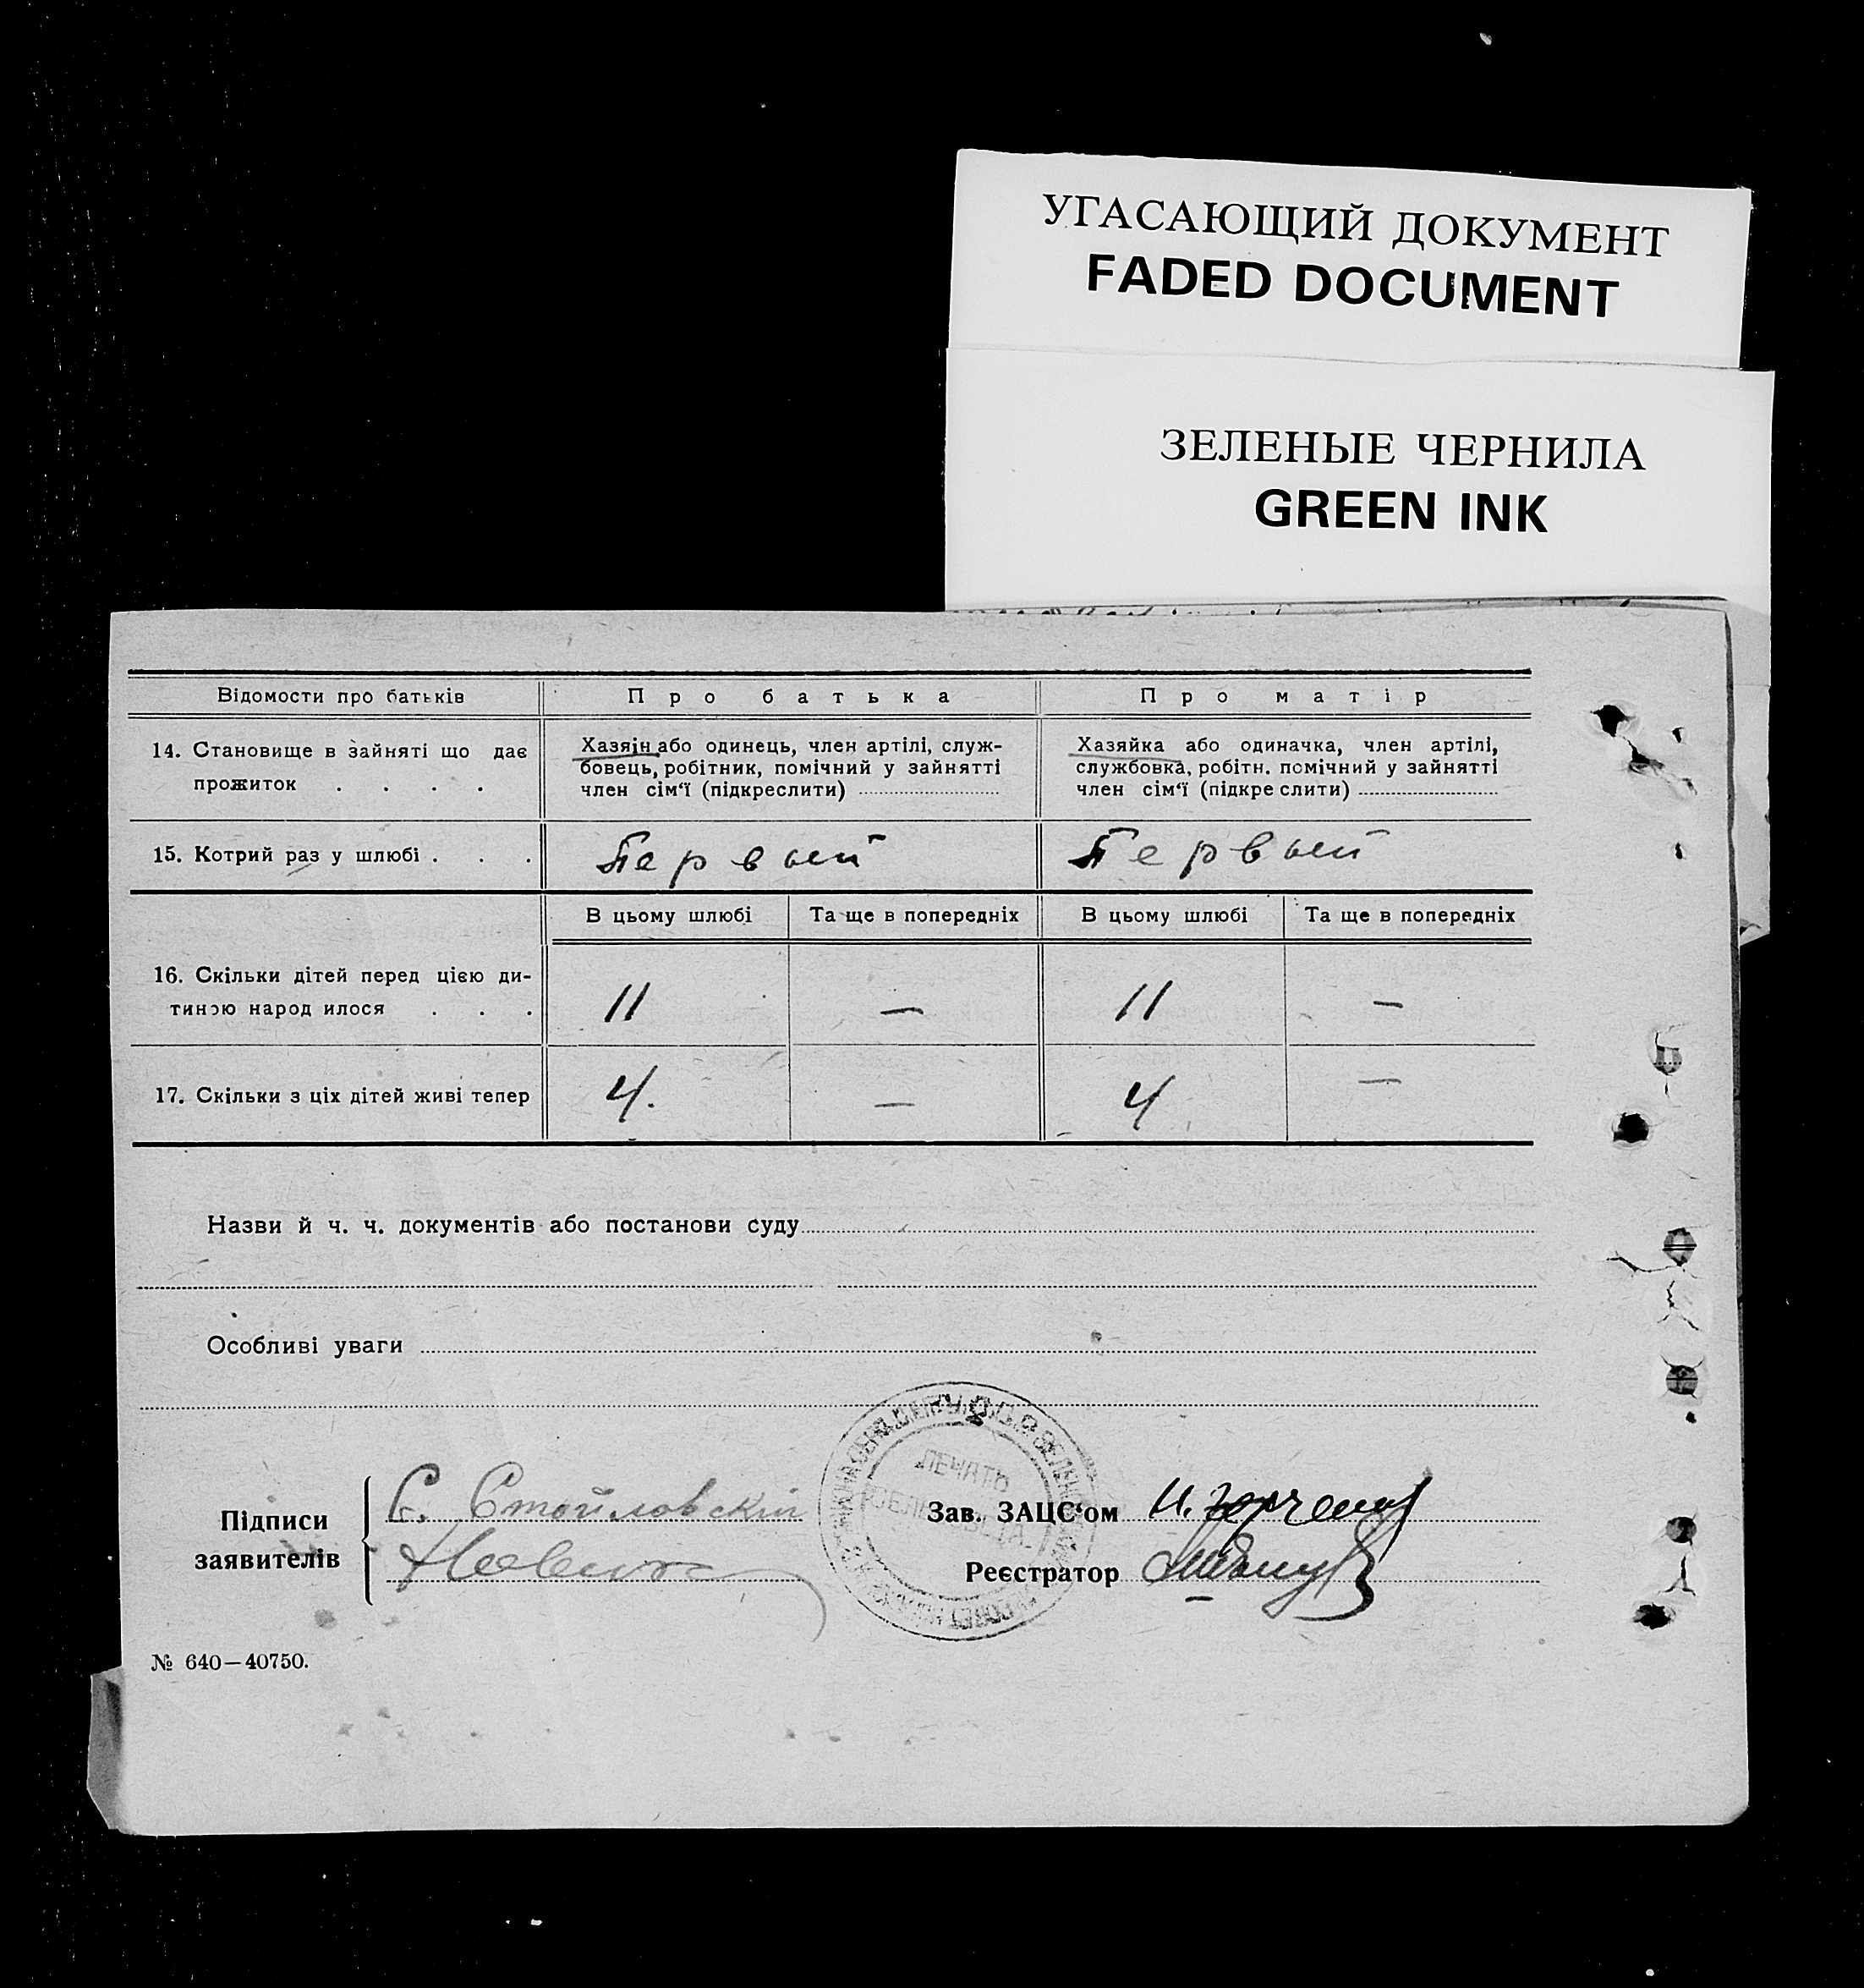 УГАСАЮЩИЙ ДОКУМЕНТ
FADED DOCUMENT
ЗЕЛЕНЫЕ ЧЕРНИЛА
GREEN INK
Відомости про батьків Про батька Про матір
14. Становище в зайняті що дає
прожиток . . . .
Хазяін або одинець, член артілі, служ-
бовець, робітник, помічний у зайнятті
член сім‘ї (підкреслити)
Хазяйка або одиначка, член артілі,
службовка, робітн. помічний у зайнятті
член сім‘ї (підкре слити)
15. Котрий раз у шлюбі . . . Первый Первый
В цьому шлюбі Та ще в попередніх В цьому шлюбі Та ще в попередніх
16. Скільки дітей перед цією ди-
тиною народ илося . . . 11 — 11 —
17. Скільки з ціх дітей живі тепер 4. — 4 —
Назви й ч. ч. документів або постанови суду
Особливі уваги
ПЕЧАТЬ
Підписи
заявителів
Є. Стойловскій
Зав. ЗАЦС‘ом
Реєстратор
№ 640—40750.